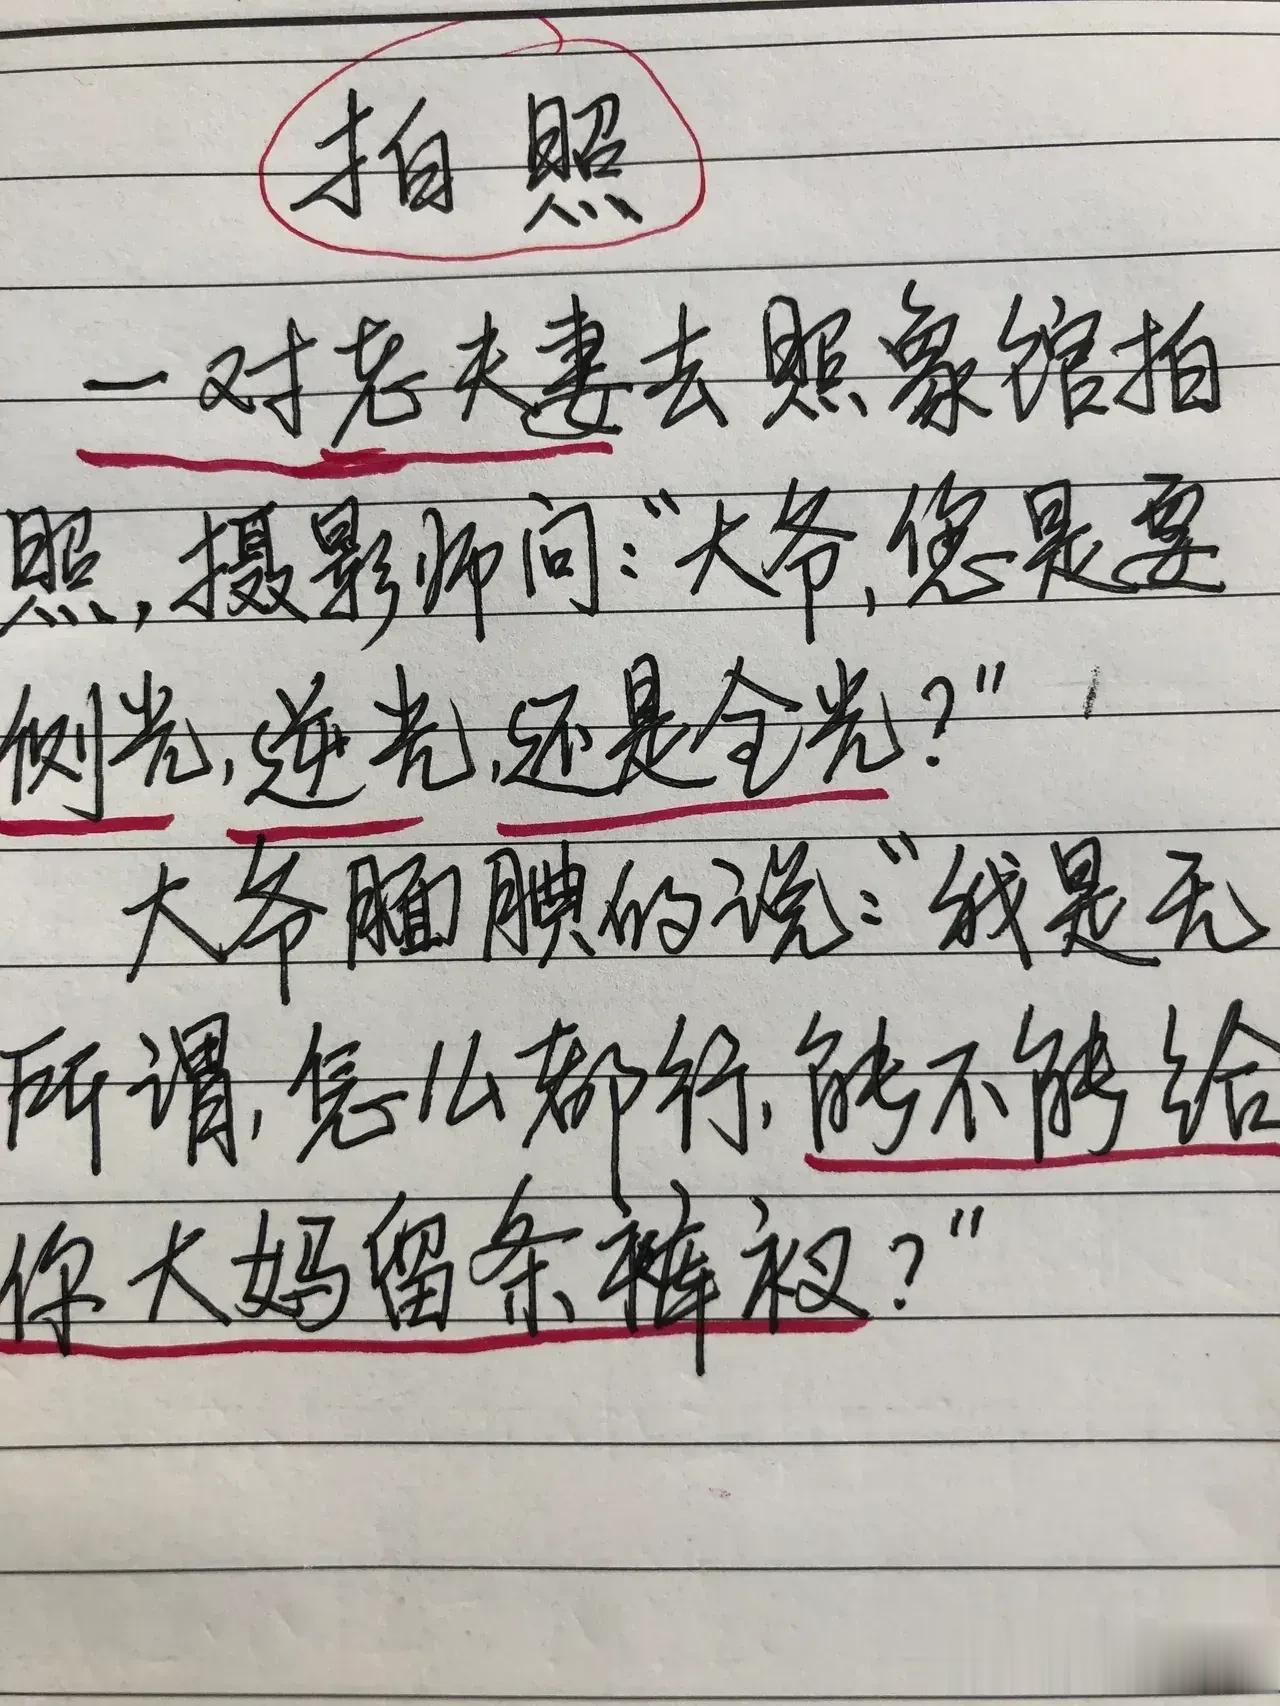 拍照
一对老夫妻去照象馆拍
照,摄影师问:"大爷,您是要
侧光,逆光,还是全光?"
大爷腼腆的说:"我是无
所谓,怎么都行,能不能给
你大妈留条裤衩?"